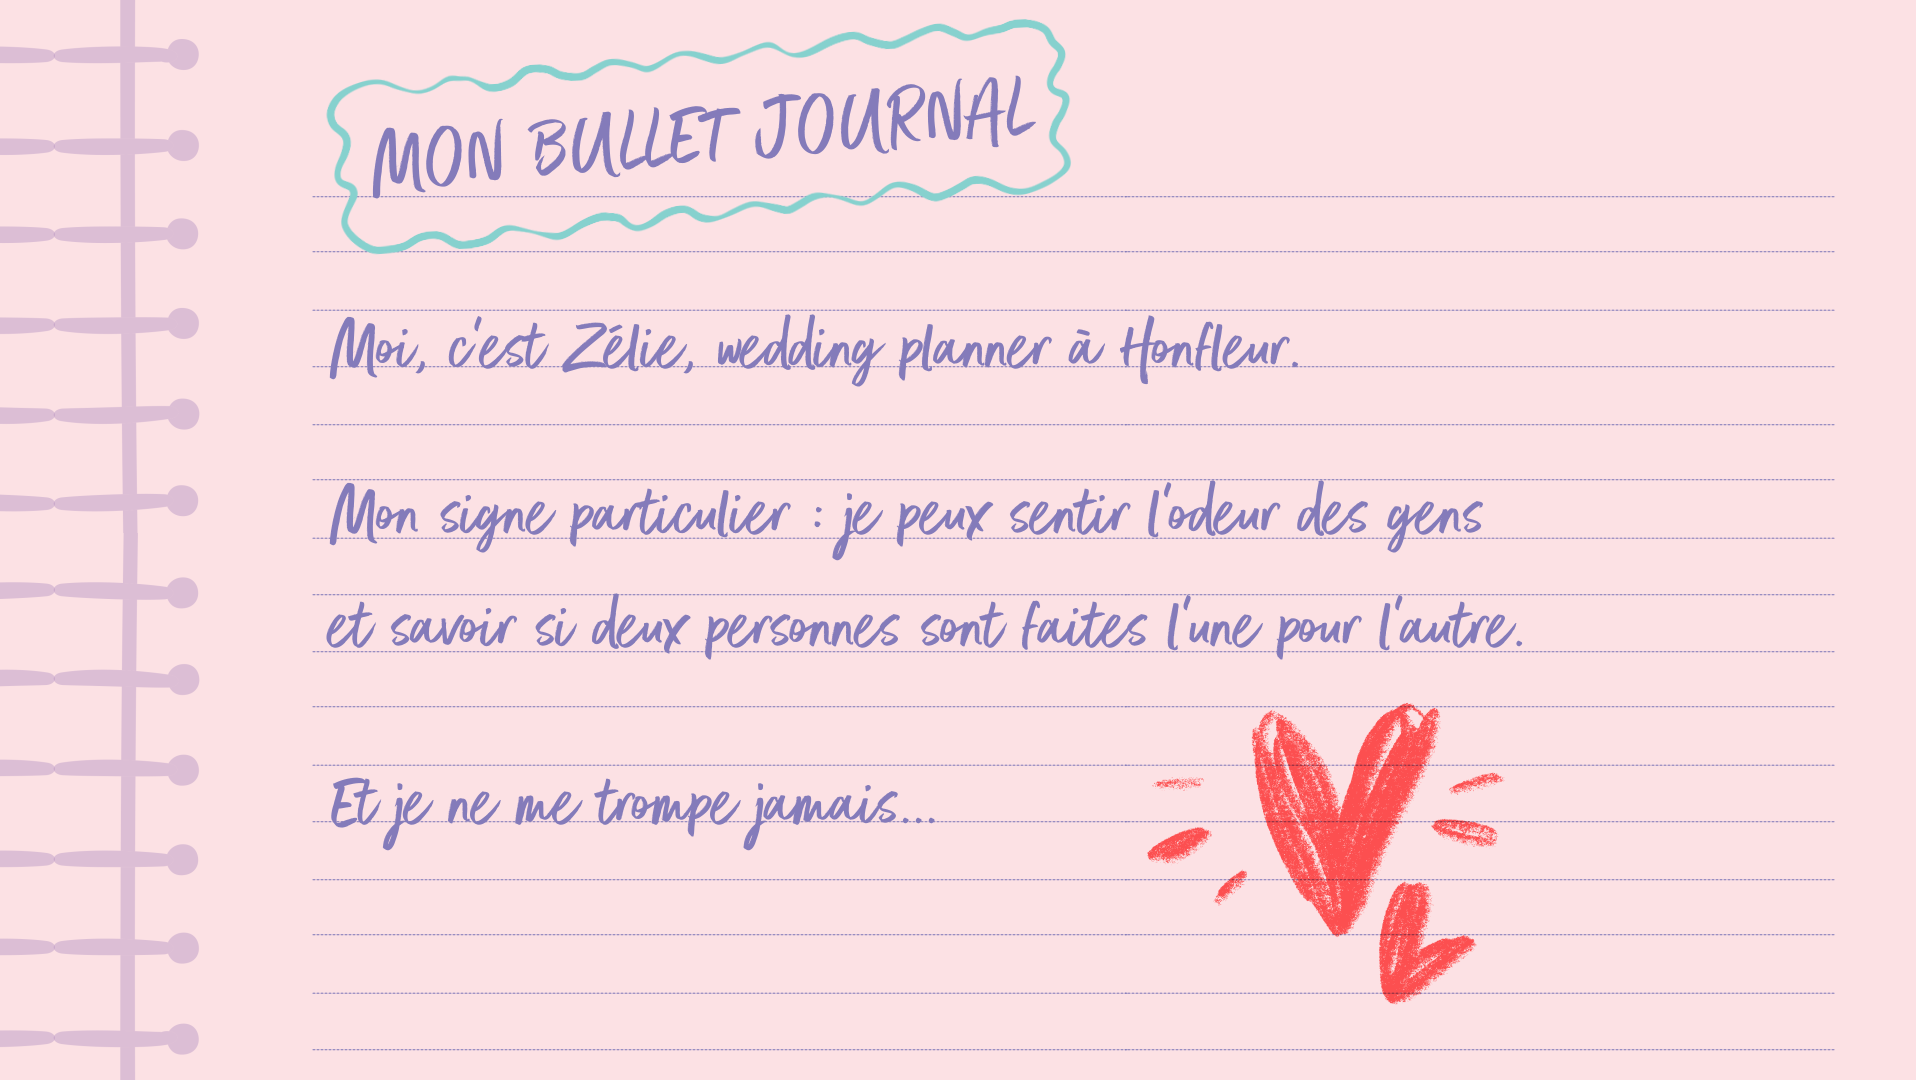 MON BULLET JOURNAL
Moi, c'est Zélie, wedding planner à Honfleur.
Mon signe particulier : je peux sentir l'odeur des gens
et savoir si deux personnes sont faites l'une pour l'autre.
Et je ne me trompe jamais...